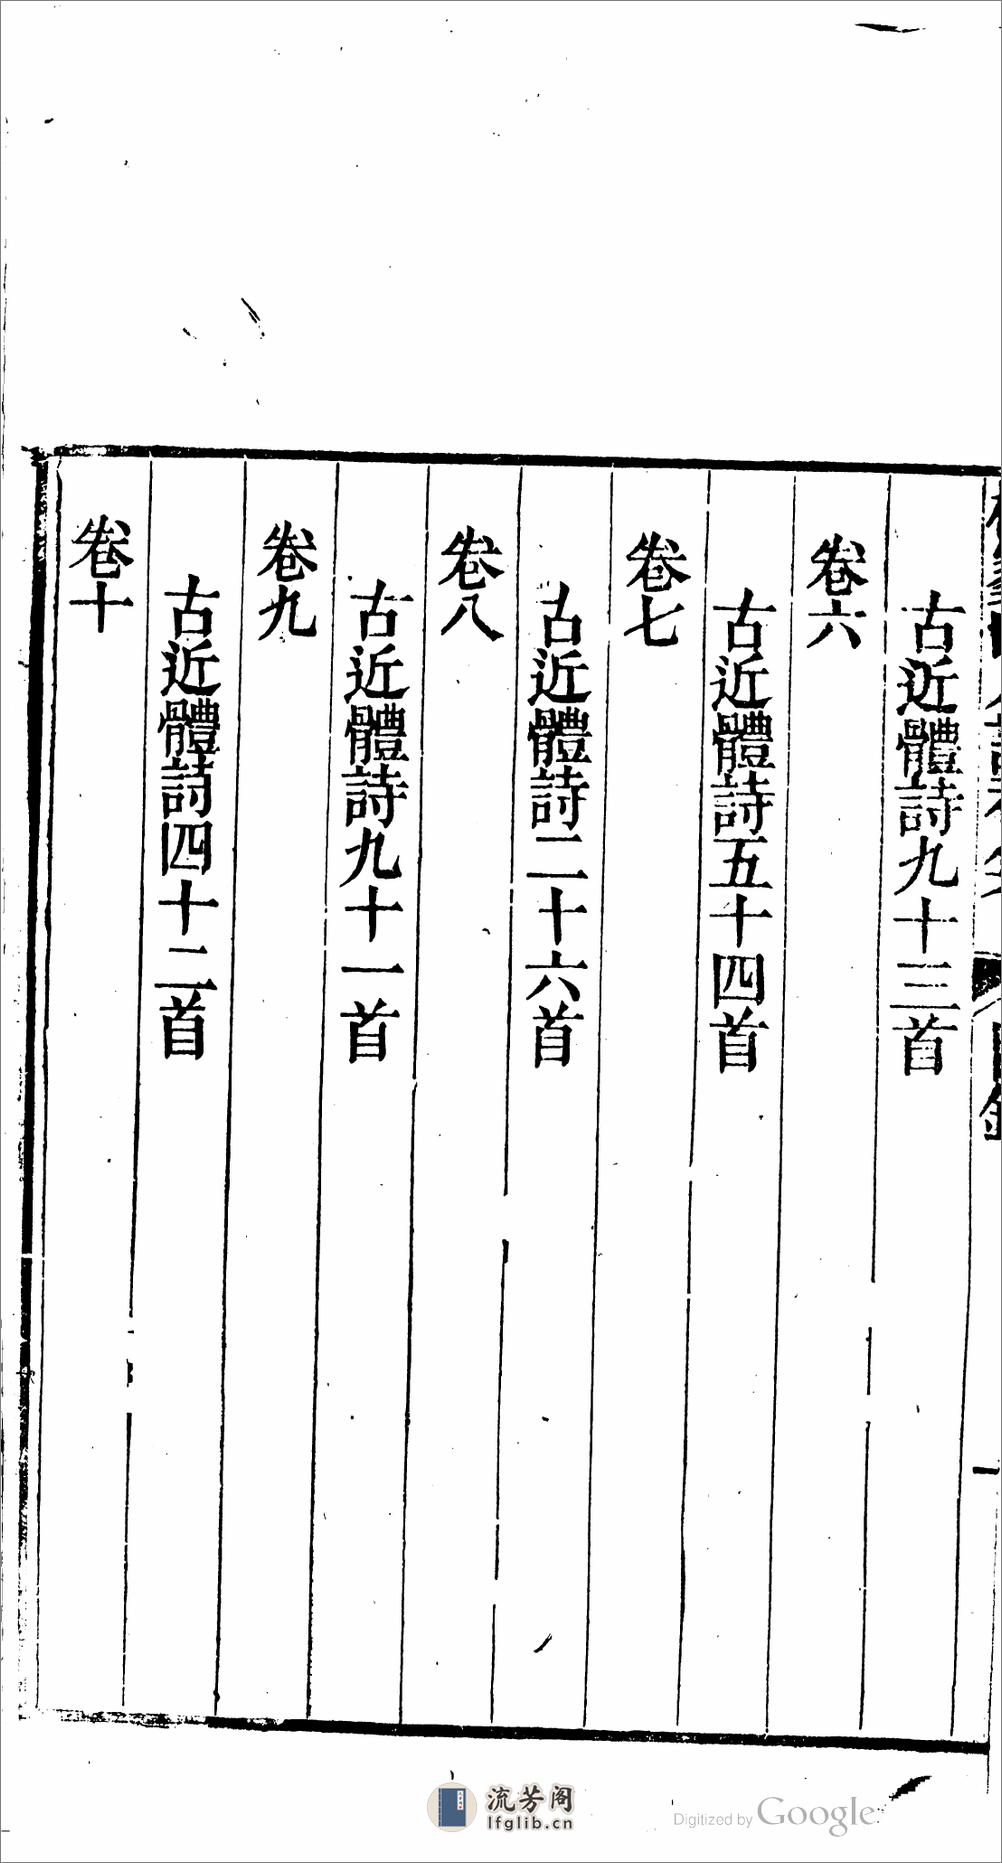 古近體詩九十三首
卷六
古近體詩五十四首
卷七
古近體詩二十六首
卷八
古近體詩九十一首
卷九
古近體詩四十二首
卷十
目錄
一
流芳阁
lfglib.cn
Digitized by Google